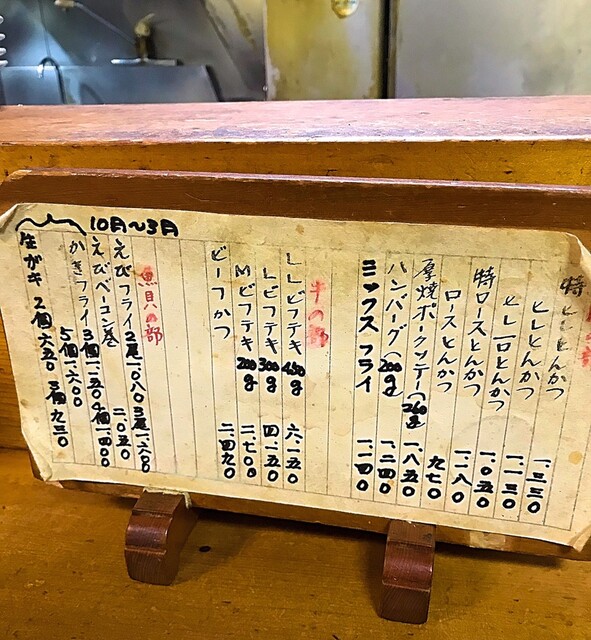 特ヒレとんかつ 一.三三〇
ヒレとんかつ 一.一三〇
ヒレ一口とんかつ 一.〇五〇
特ロースとんかつ 一.一八〇
ロースとんかつ 九七〇
厚焼ポークソテー(260g 一.八五〇
ハンバーグ(200g 一.二四〇
ミックスフライ 一.一四〇
牛の部
LLビフテキ 450g 六.一五〇
Lビフテキ 300g 四.一五〇
Mビフテキ 200g 二.七〇〇
ビーフかつ 二.四九〇
魚貝の部
えびフライ 2尾 一.〇八〇 3尾 一.六〇〇
えびベーコン巻 二.〇五〇
10月〜3月
かきフライ 3個 一.一五〇 4個 一.四〇〇
5個 一.六〇〇
生ガキ 2個 六五〇 3個 九三〇